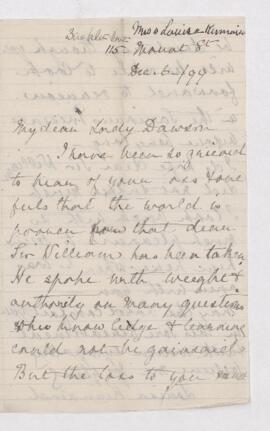 Miss Louisa
115 Mount St
Dec. 6/99
My dear Lady Dawson
I have been so grieved
to hear of your loss & one
feels that the world is
poorer now that dear
Sir William has been taken
He spoke with weight &
authority on many questions
& his knowledge & learning
could not be gainsaid
But the loss to you